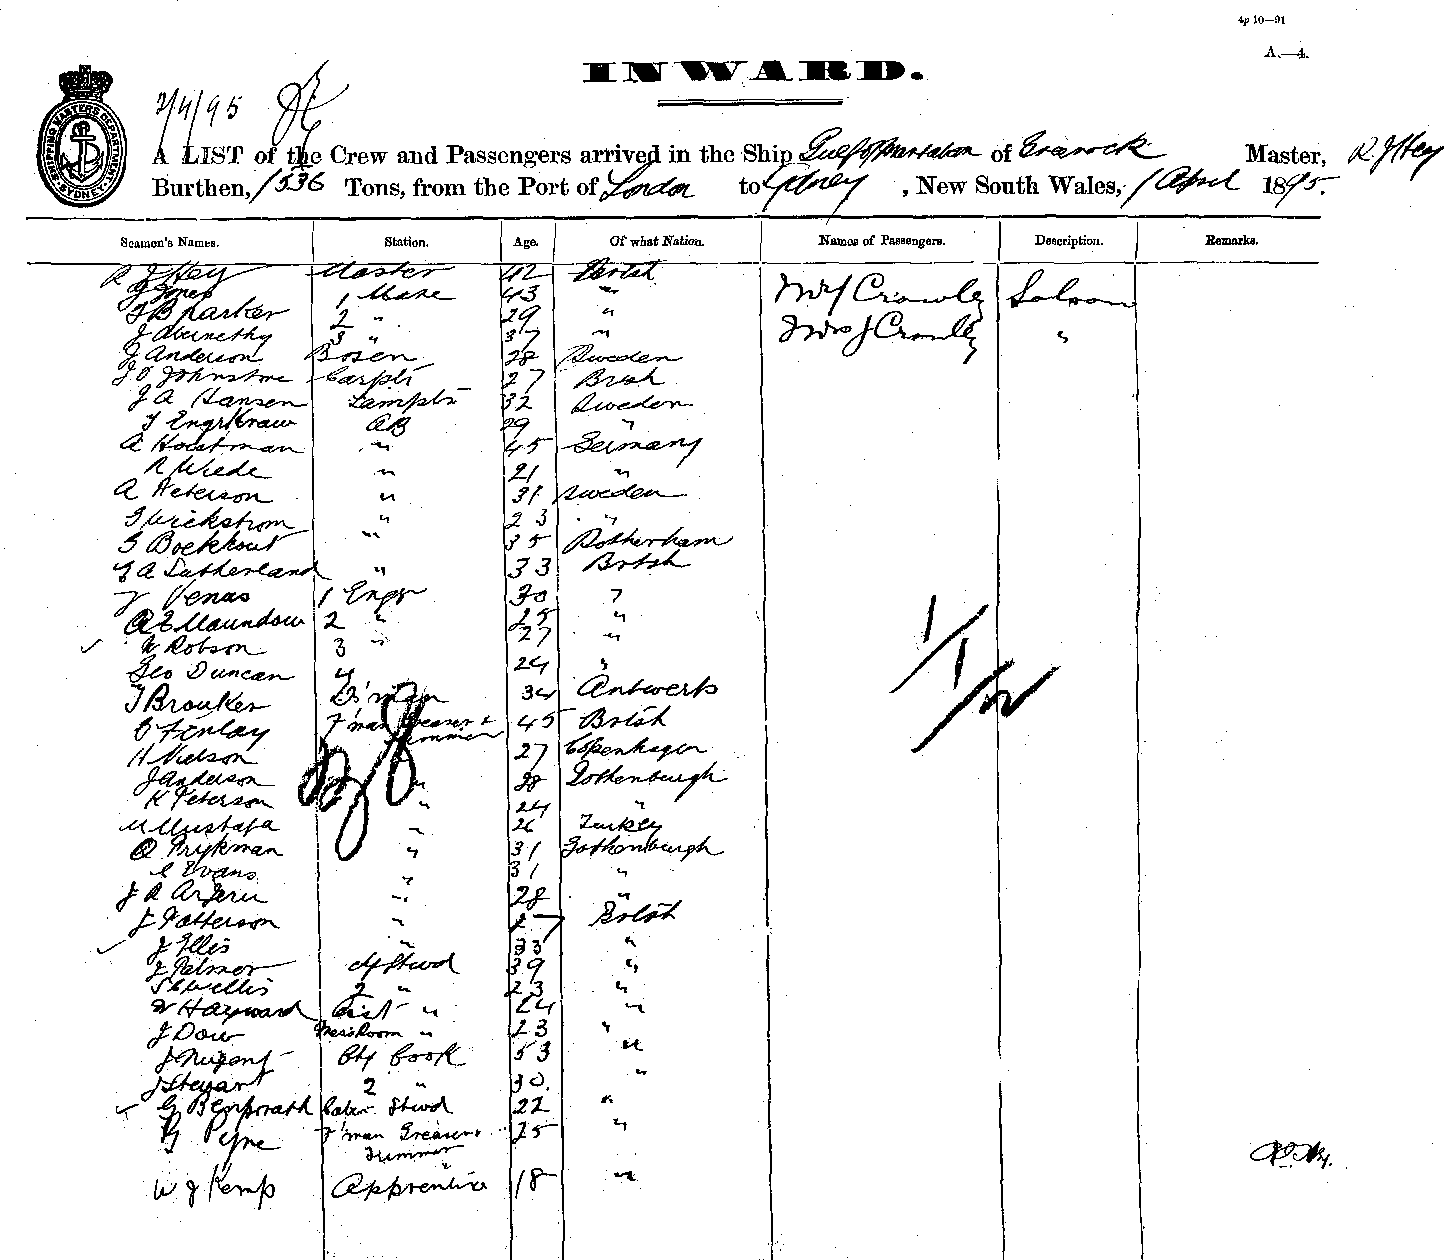 4p 10—91
A.—4.
INWARD.
2/4/95
SHIPPING MASTERS DEPARTMENT SYDNEY
A LIST of the Crew and Passengers arrived in the Ship Gulf of Martaban of Greenock Master, R J Hey
Burthen, 1536 Tons, from the Port of London to Sydney, New South Wales, 1 April 1895.
Seamen's Names. Station. Age. Of what Nation. Names of Passengers. Description. Remarks.
R J Hey Master 42 British
J Jones 1 Mate 43 " Mr J Crowley Saloon
J B Parker 2 " 29 " Mrs J Crowley "
J Abernethy 3 " 37 "
J Anderson Bosen 28 Sweden
J O Johnstone Carptr 27 Brtsh
J A Hansen Lamptr 32 Sweden
AB 29 "
A Horstman " 45 Germany
R Wrede " 21 "
A Peterson " 31 Sweden
J Wickstrom " 23 "
G Boekhout " 35 Rotherham
J A Sutherland " 33 Brtsh
J Venas 1 Engr 30 "
A E Maundow 2 " 25 "
W Robson 3 " 27 "
Geo Duncan 4 24 "
J Brouker D'man 34 Antwerb
C Finlay F'man Greaser & Trimmer 45 Brtsh
H Nielson 27 Copenhagen
J Anderson " 28 Gothenburgh
K Peterson " 24 "
M Mustafa " 26 Turkey
O Frykman " 31 Gothenburgh
C Evans " 31 "
J R " 28 "
J Patterson " 27 Brtsh
J Ellis " 33 "
J Palmer Cf Stwd 39 "
2 " 23 "
W Hayward Asist " 24 "
J Dow MessRoom " 23 "
J Nugent Chf Cook 53 "
J Steyart 2 " 30 "
G Benporath Cabin Stwd 22 "
G Pyne F'man Greaser & 25 "
Trimmer
W J Kemp Apprentice 18 "